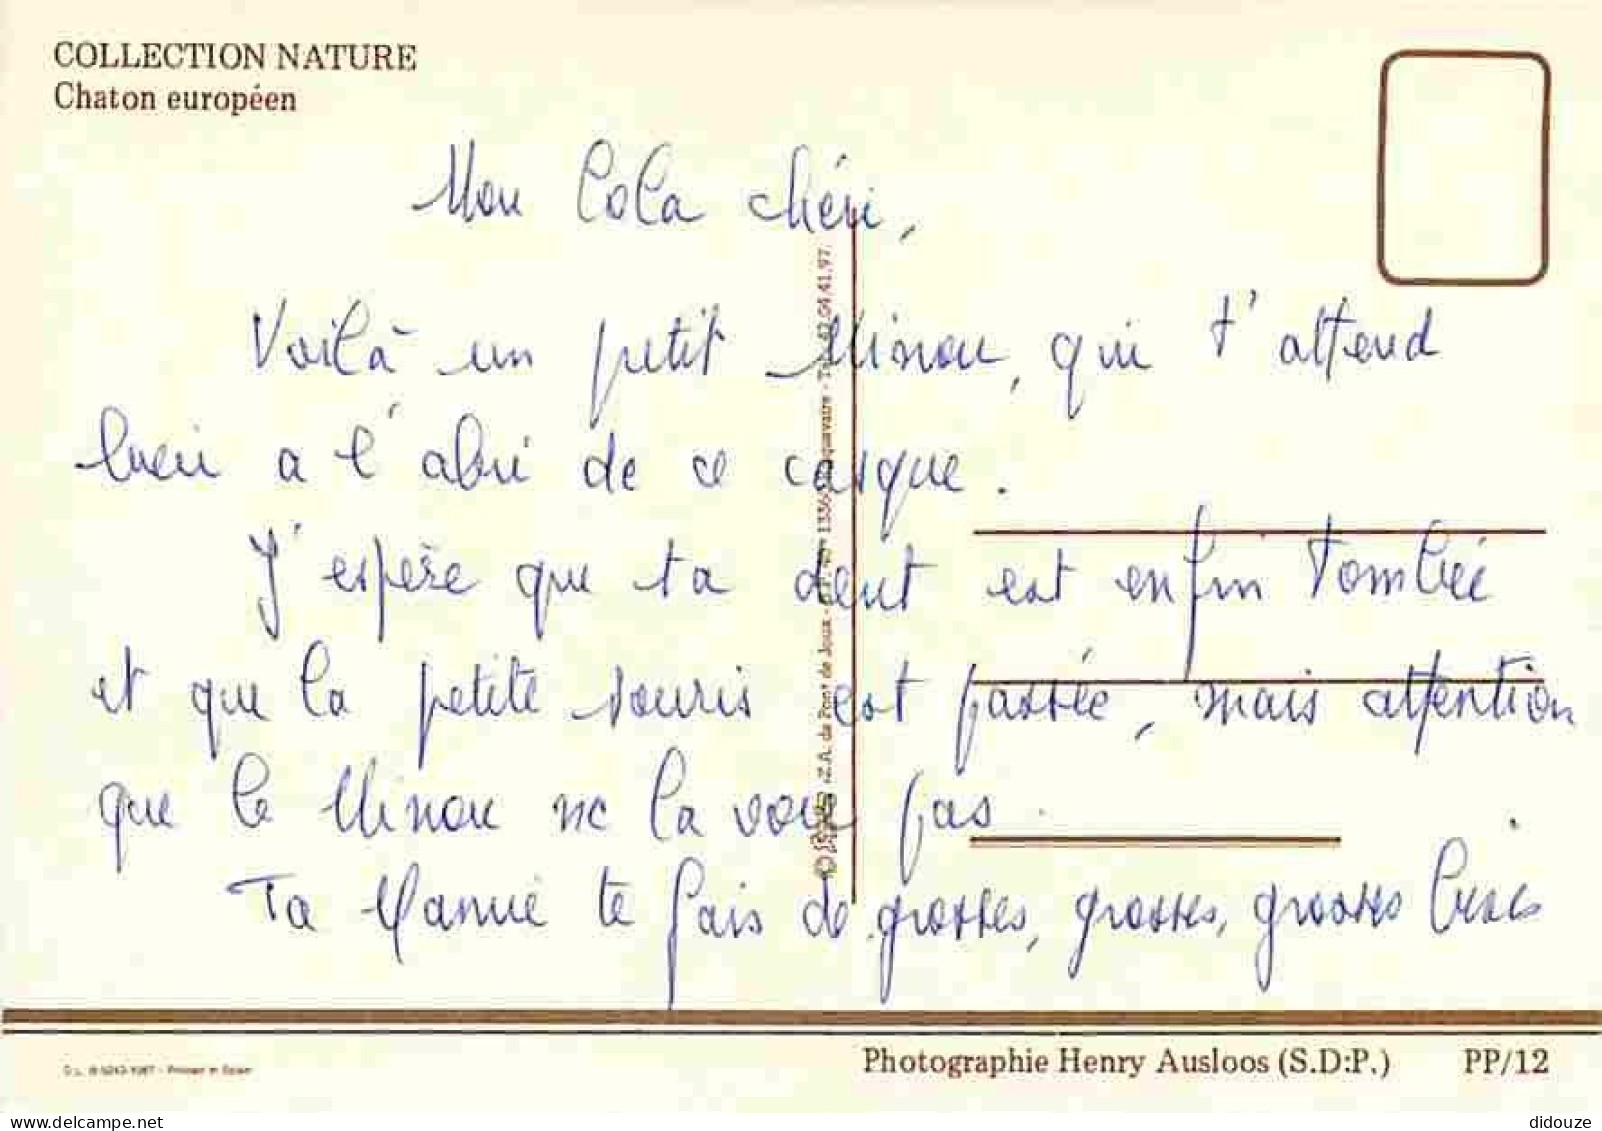 COLLECTION NATURE
Chaton européen
Mon Lola chéri,
Voilà un petit Minou, qui t'attend
bien a l'abri de ce casque.
J'espère que ta dent est enfin tombée
et que la petite souris est passée, mais attention
que le Minou ne la voie pas.
Ta Mamie te fais de grosses, grosses, grosses bises
Z.A. de Pont de Joux -
Photographie Henry Ausloos (S.D.P.)
PP/12
delcampe.net
didouze